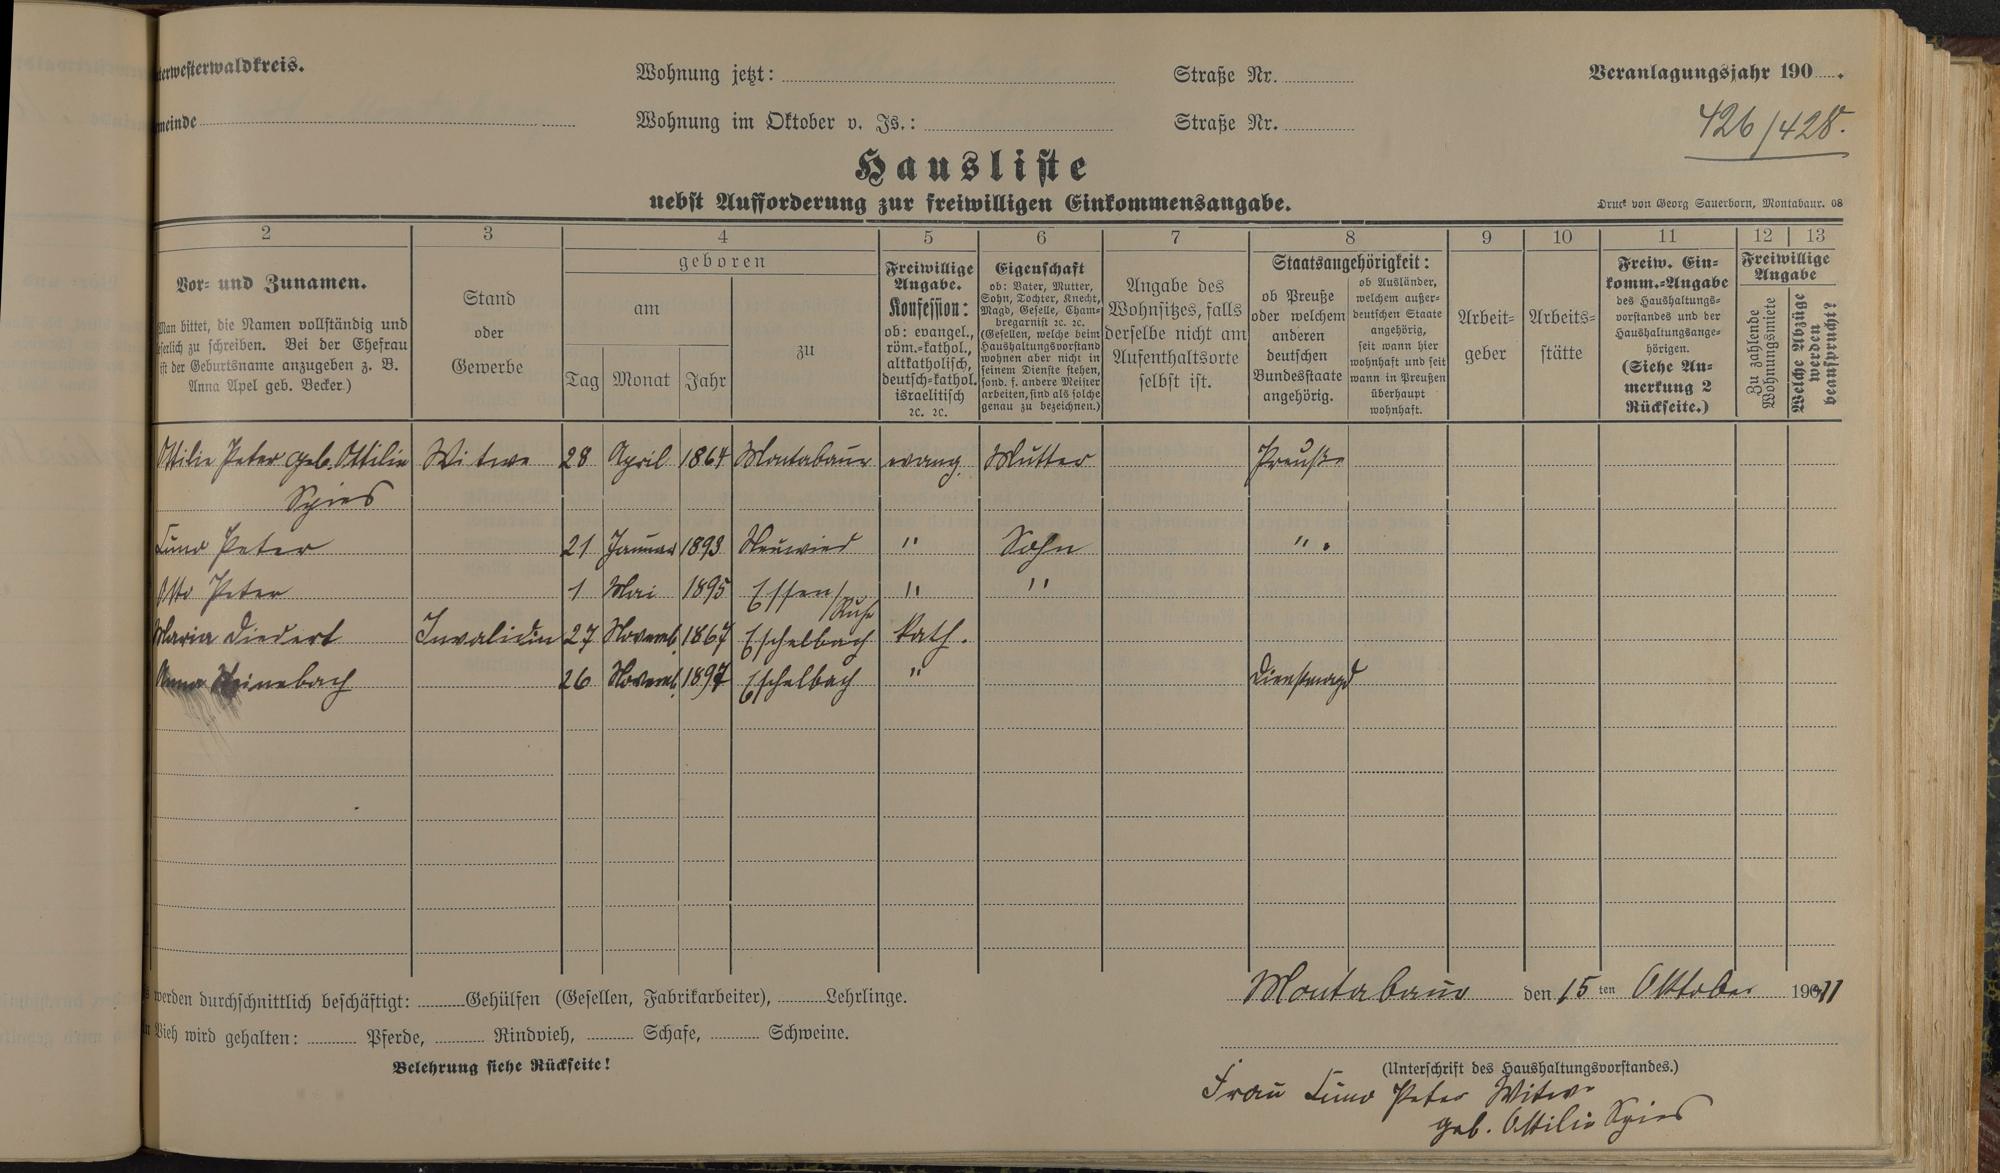 terwesterwaldkreis.
Wohnung jetzt:
Straße Nr.
Veranlagungsjahr 190 .
meinde
Wohnung im Oktober v. Js.:
Straße Nr.
426/428.
Hausliste
nebst Aufforderung zur freiwilligen Einkommensangabe.
Druck von Georg Sauerborn, Montabaur. 08
2 3 4 5 6 7 8 9 10 11 12 13
Vor- und Zunamen.
Man bittet, die Namen vollständig und
eserlich zu schreiben. Bei der Ehefrau
ist der Geburtsname anzugeben z. B.
Anna Apel geb. Becker.)
Stand
oder
Gewerbe
geboren
am
Tag Monat Jahr
zu
Freiwillige
Angabe.
Konfession:
ob: evangel.,
röm.-kathol.,
altkatholisch,
deutsch-kathol.
israelitisch
ꝛc. ꝛc.
Eigenschaft
ob: Vater, Mutter,
Sohn, Tochter, Knecht,
Magd, Geselle, Cham-
bregarnist ꝛc. ꝛc.
(Gesellen, welche beim
Haushaltungsvorstand
wohnen aber nicht in
seinem Dienste stehen,
sond. f. andere Meister
arbeiten, sind als solche
genau zu bezeichnen.)
Angabe des
Wohnsitzes, falls
derselbe nicht am
Aufenthaltsorte
selbst ist.
Staatsangehörigkeit:
ob Preuße
oder welchem
anderen
deutschen
Bundesstaate
angehörig.
ob Ausländer,
welchem außer-
deutschen Staate
angehörig,
seit wann hier
wohnhaft und seit
wann in Preußen
überhaupt
wohnhaft.
Arbeit-
geber
Arbeits-
stätte
Freiw. Ein-
komm.-Angabe
des Haushaltungs-
vorstandes und der
Haushaltungsange-
hörigen.
(Siehe An-
merkung 2
Rückseite.)
Freiwillige
Angabe
Zu zahlende
Wohnungsmiete
Welche Abzüge
werden
beansprucht?
Ottilie Peter geb. Ottilie Witwe 28 April 1864 Montabaur evang. Mutter Preuße
Spies
Peter 21 Januar 1893 Neuwied " Sohn " .
Otto Peter 1 Mai 1895 Essen/Ruhr " "
Maria Diedert Invalidin 27 Novemb. 1867 Eschelbach kath.
Anna Heinebach 26 Novemb. 1897 Eschelbach " Dienstmagd
werden durchschnittlich beschäftigt: Gehülfen (Gesellen, Fabrikarbeiter), Lehrlinge.
Montabaur den 15 ten Oktober 1911
Vieh wird gehalten: Pferde, Rindvieh, Schafe, Schweine.
Belehrung siehe Rückseite!
(Unterschrift des Haushaltungsvorstandes.)
Frau Peter Witwe
geb. Ottilie Spies